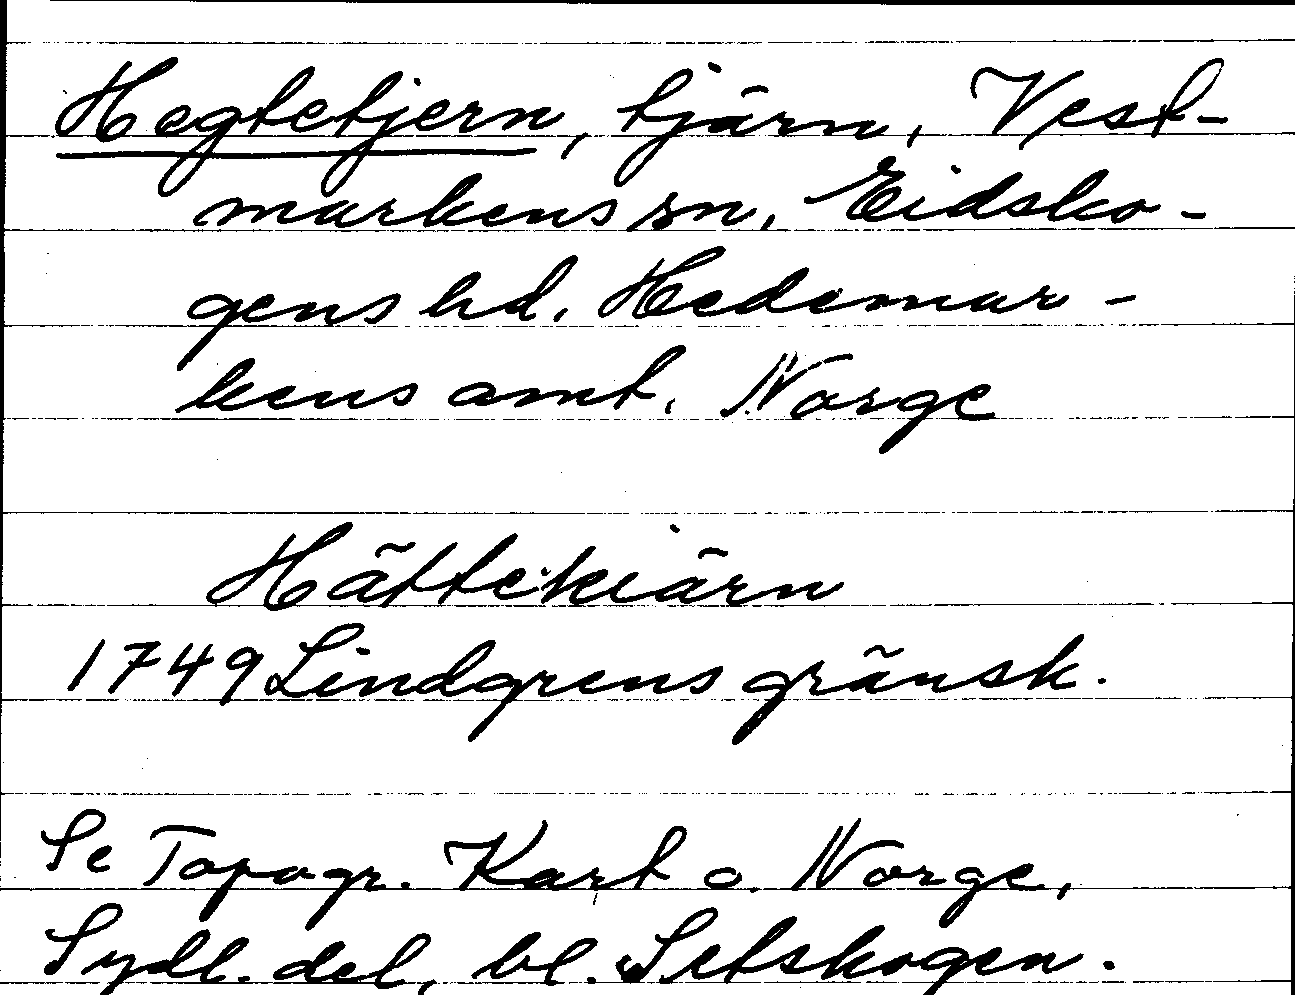 Hegtetjern, tjärn, Vest-
markens sn, Eidsko-
gens hd. Hedemar-
kens amt. Norge
Hättekiärn
1749 Lindgrens gränsk.
Se Topogr. Kart o. Norge,
Sydl. del, bl. Setskogen.